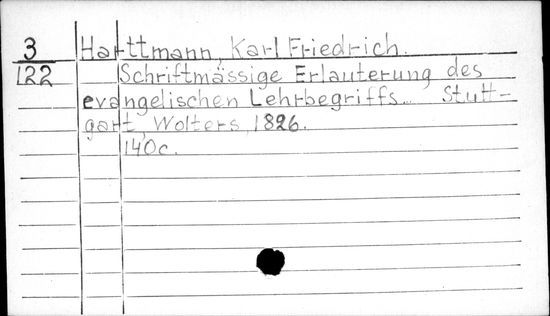 3 Harttmann, Karl Friedrich.
122 Schriftmässige Erlauterung des
evangelischen Lehrbegriffs... Stutt-
gart, Wolters, 1826.
140c.